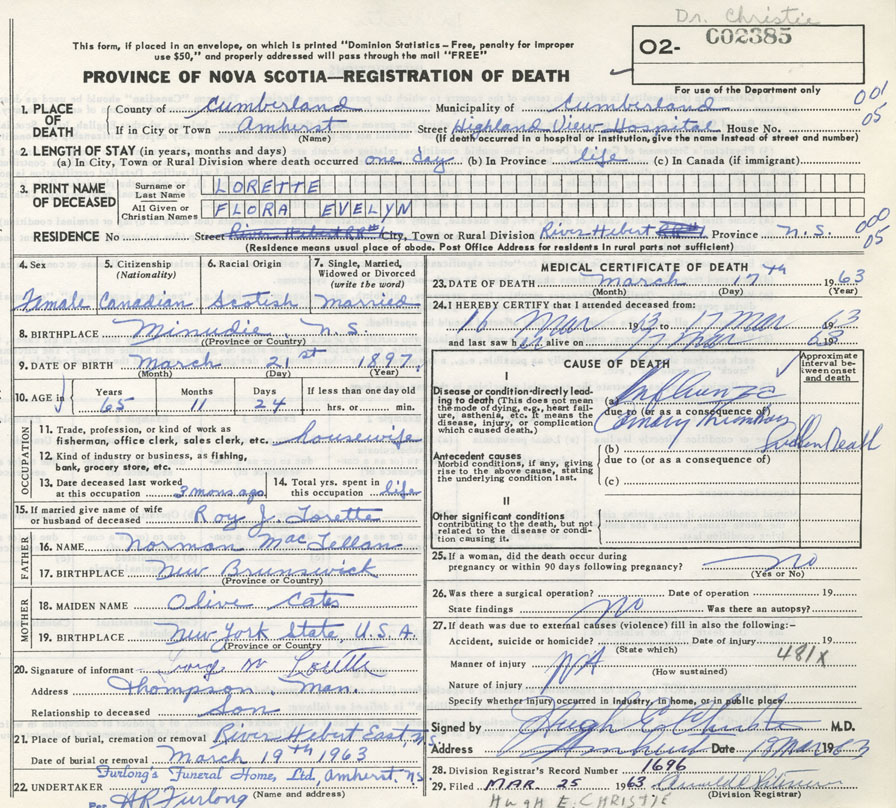 Dr. Christie
This form, if placed in an envelope, on which is printed "Dominion Statistics - Free, penalty for improper
use $50," and properly addressed will pass through the mail "FREE"
O2- C02385
PROVINCE OF NOVA SCOTIA—REGISTRATION OF DEATH
For use of the Department only
1. PLACE OF DEATH
County of Cumberland Municipality of Cumberland 001
If in City or Town Amherst Street Highland View Hospital House No. 05
(Name) (If death occurred in a hospital or institution, give the name instead of street and number)
2. LENGTH OF STAY (in years, months and days)
(a) In City, Town or Rural Division where death occurred one day (b) In Province life (c) In Canada (if immigrant)
3. PRINT NAME OF DECEASED
Surname or Last Name LORETTE
All Given or Christian Names FLORA EVELYN
RESIDENCE No Street River Hebert RR#1 City, Town or Rural Division River Hebert RR#1 Province N.S. 000
05
(Residence means usual place of abode. Post Office Address for residents in rural parts not sufficient)
4. Sex 5. Citizenship (Nationality) 6. Racial Origin 7. Single, Married, Widowed or Divorced (write the word)
Female Canadian Scotish Married
8. BIRTHPLACE Minudie, N.S.
(Province or Country)
9. DATE OF BIRTH March 21st 1897
(Month) (Day) (Year)
10. AGE in Years Months Days If less than one day old
65 11 24 hrs. or min.
OCCUPATION
11. Trade, profession, or kind of work as
fisherman, office clerk, sales clerk, etc. housewife
12. Kind of industry or business, as fishing,
bank, grocery store, etc.
13. Date deceased last worked
at this occupation 3 mons ago
14. Total yrs. spent in
this occupation life
15. If married give name of wife
or husband of deceased Roy J. Lorette
FATHER
16. NAME Norman MacLellan
17. BIRTHPLACE New Brunswick
(Province or Country)
MOTHER
18. MAIDEN NAME Olive Cates
19. BIRTHPLACE New York State, U.S.A.
(Province or Country)
20. Signature of informant Lorette
Address Thompson, Man.
Relationship to deceased Son
21. Place of burial, cremation or removal River Hebert East, N.S.
Date of burial or removal March 19th 1963
Furlong's Funeral Home, Ltd, Amherst, N.S.
22. UNDERTAKER (Name and address)
Per AR Furlong
MEDICAL CERTIFICATE OF DEATH
23. DATE OF DEATH March 17th 1963
(Month) (Day) (Year)
24. I HEREBY CERTIFY that I attended deceased from:
16 Mar 1963 to 17 Mar 1963
and last saw h alive on 17 Mar 1963
CAUSE OF DEATH
Approximate interval between onset and death
I
Disease or condition directly leading to death (This does not mean the mode of dying, e.g., heart failure, asthenia, etc. It means the disease, injury, or complication which caused death.)
(a) Influenza
due to (or as a consequence of)
Coronary Thrombosis
Sudden Death
Antecedent causes
Morbid conditions, if any, giving rise to the above cause, stating the underlying condition last.
(b)
due to (or as a consequence of)
(c)
II
Other significant conditions
contributing to the death, but not related to the disease or condition causing it.
25. If a woman, did the death occur during
pregnancy or within 90 days following pregnancy? no
(Yes or No)
26. Was there a surgical operation? Date of operation 19
State findings no Was there an autopsy?
27. If death was due to external causes (violence) fill in also the following:-
Accident, suicide or homicide? Date of injury 19
(State which) 481X
Manner of injury NA
(How sustained)
Nature of injury
Specify whether injury occurred in industry, in home, or in public place
Signed by Hugh E. Christie M.D.
Address Amherst Date 19 Mar 1963
28. Division Registrar's Record Number 1696
29. Filed MAR. 25 1963
(Division Registrar)
HUGH E. CHRISTIE